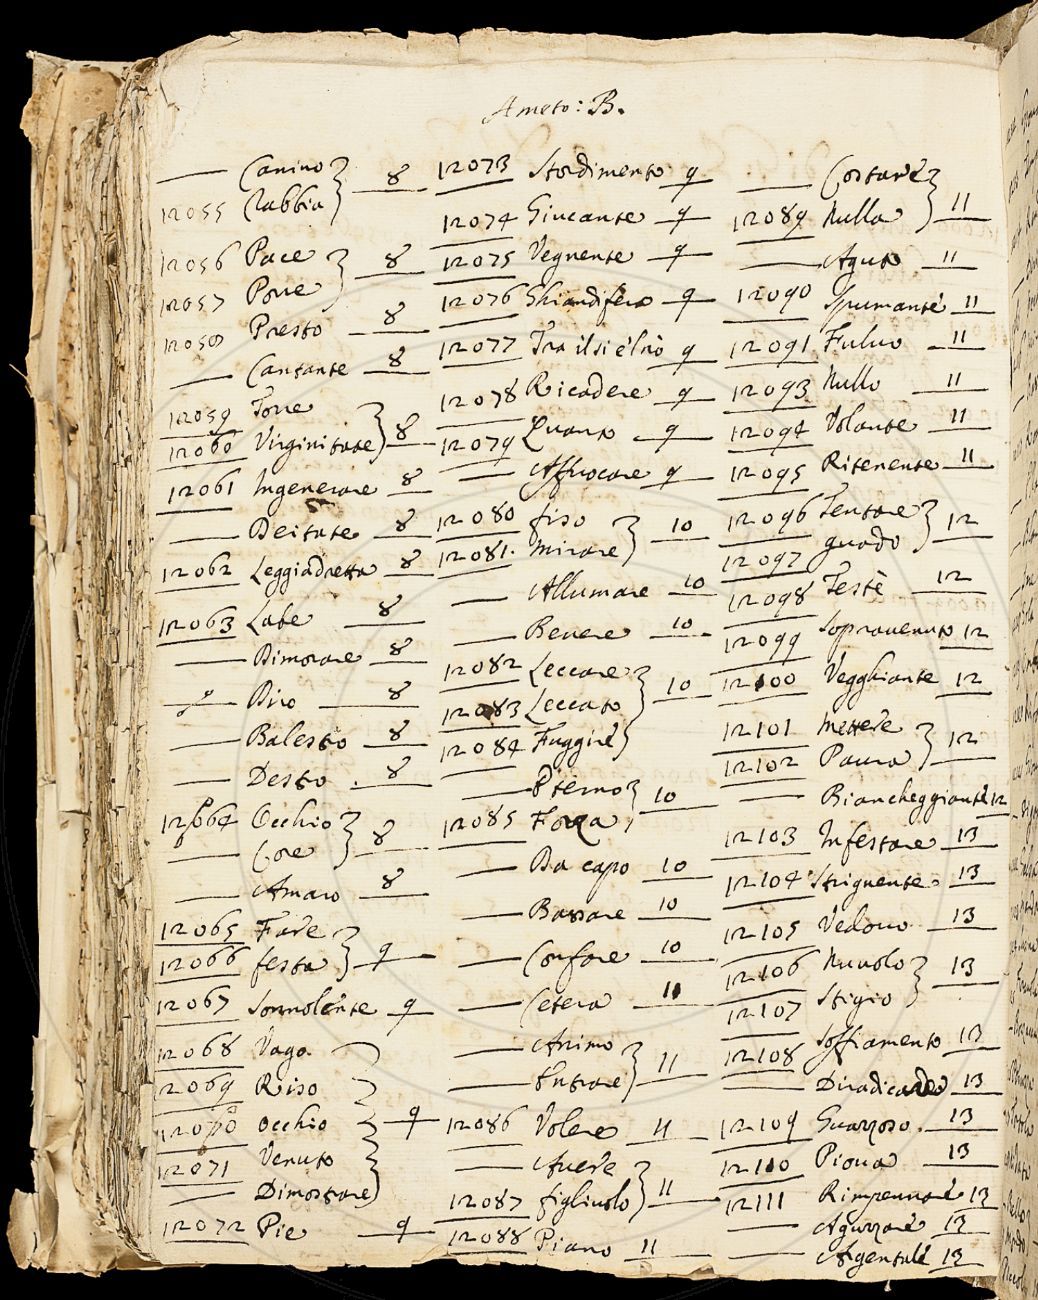 Ameto: B.
— Canino } 8
12055 Rabbia
12056 Pace } 8
12057 Porre
12058 Presto 8
— Cantante 8
12059 Torre } 8
12060 Virginitate
12061 Ingenerare 8
— Deitate 8
12062 Leggiadretta 8
12063 Labe 8
— Dimorare 8
— Dino 8
— Balestro 8
— Desto . 8
12064 Occhio } 8
— Core
— Amaro 8
12065 Fare } 9
12066 festa
12067 Sonnolente 9
12068 Vago } 9
12069 Riso
12070 occhio
12071 Venuto
— Dimostrare
12072 Pie 9
12073 Stordimento 9
12074 Giucante 9
12075 Vegnente 9
12076 Ghiandifero 9
12077 Tra il si e 'l no 9
12078 Ricadere 9
12079 Quanto 9
— Affuocare 9
12080 fiso } 10
12081. mirare
— Allumare 10
— Benere 10
12082 Leccare } 10
12083 Leccato
12084 Fuggire
— Eterno } 10
12085 Forza
— Da capo 10
— Bassare 10
— Confare 10
— Cetera 11
— Animo } 11
— Entrare
12086 Volere 11
— Avere } 11
12087 figliuolo
12088 Piano 11
— Costare } 11
12089 Nulla
— Aguto 11
12090 Spumante 11
12091 Fulvo 11
12093 Nullo 11
12094 Volante 11
12095 Ritenente 11
12096 Tentare } 12
12097 guado
12098 Testè 12
12099 Sopravenuto 12
12100 Vegghiante 12
12101 Mettere } 12
12102 Paura
— Biancheggiante 12
12103 Infestare 13
12104 Strignente 13
12105 Vedovo 13
12106 Nuvolo } 13
12107 Stigio
12108 Soffiamento 13
— Diradicando 13
12109 Guazzoso . 13
12110 Piova 13
12111 Rimpennare 13
— Aguzzare 13
— Argentale 13